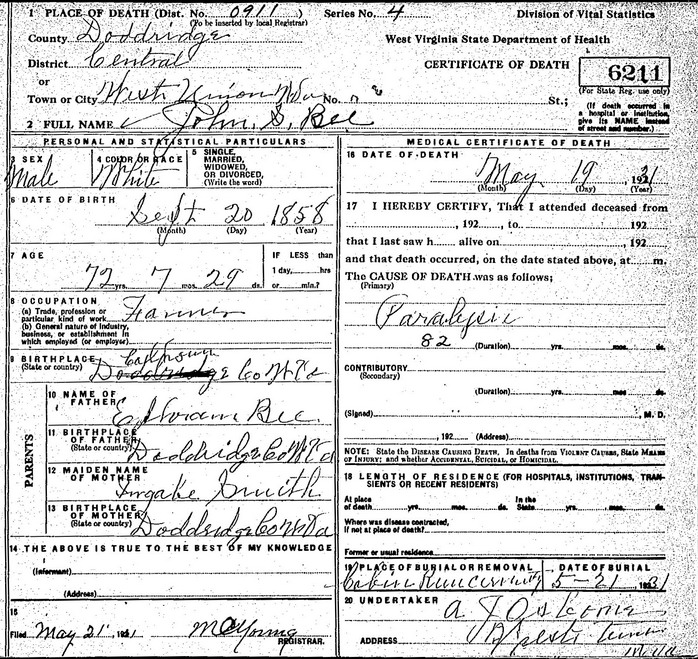 1 PLACE OF DEATH (Dist. No. 0911) Series No. 4 Division of Vital Statistics
(To be inserted by local Registrar)
County Doddridge West Virginia State Department of Health
District Central CERTIFICATE OF DEATH
or
6211
(For State Reg. use only)
Town or City West Union W Va No. St.;
(If death occurred in a hospital or institution, give its NAME instead of street and number.)
2 FULL NAME John S. Bee
PERSONAL AND STATISTICAL PARTICULARS
3 SEX Male
4 COLOR OR RACE White
5 SINGLE, MARRIED, WIDOWED, OR DIVORCED, (Write the word)
6 DATE OF BIRTH Sept 20 1858
(Month) (Day) (Year)
7 AGE 72 yrs. 7 mos. 29 ds.
IF LESS than 1 day, hrs or min.?
8 OCCUPATION Farmer
(a) Trade, profession or particular kind of work
(b) General nature of industry, business, or establishment in which employed (or employer)
9 BIRTHPLACE Co W Va
(State or country)
PARENTS
10 NAME OF FATHER Ephraim Bee
11 BIRTHPLACE OF FATHER Doddridge Co W Va
(State or country)
12 MAIDEN NAME OF MOTHER Smith
13 BIRTHPLACE OF MOTHER Doddridge Co W Va
(State or country)
14 THE ABOVE IS TRUE TO THE BEST OF MY KNOWLEDGE
(Informant)
(Address)
15
Filed May 21 1931 M C Young
REGISTRAR.
MEDICAL CERTIFICATE OF DEATH
16 DATE OF DEATH
May 19, 1931
(Month) (Day) (Year)
17 I HEREBY CERTIFY, That I attended deceased from
, 192 , to , 192
that I last saw h alive on , 192
and that death occurred, on the date stated above, at m.
The CAUSE OF DEATH was as follows;
(Primary)
Paralysis
82
(Duration) yrs. mos. ds.
CONTRIBUTORY
(Secondary)
(Duration) yrs. mos. ds.
(Signed) , M. D.
, 192 (Address)
NOTE: State the DISEASE CAUSING DEATH. In deaths from VIOLENT CAUSES, State MEANS OF INJURY; and whether ACCIDENTAL, SUICIDAL, OR HOMICIDAL.
18 LENGTH OF RESIDENCE (FOR HOSPITALS, INSTITUTIONS, TRANSIENTS OR RECENT RESIDENTS)
At place of death yrs. mos. ds. In the State yrs. mos. ds.
Where was disease contracted, if not at place of death?
Former or usual residence
19 PLACE OF BURIAL OR REMOVAL DATE OF BURIAL
Cabin Run 5-21 1931
20 UNDERTAKER
ADDRESS West Union
W Va